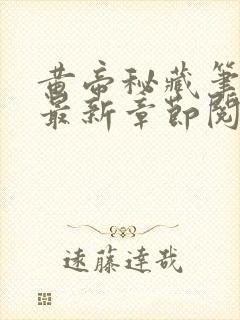 黄帝秘藏笔
最新章节阅
遠藤達哉